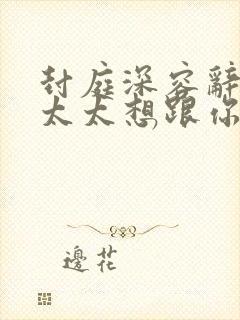 封庭深容辭
太太想跟你
邊花